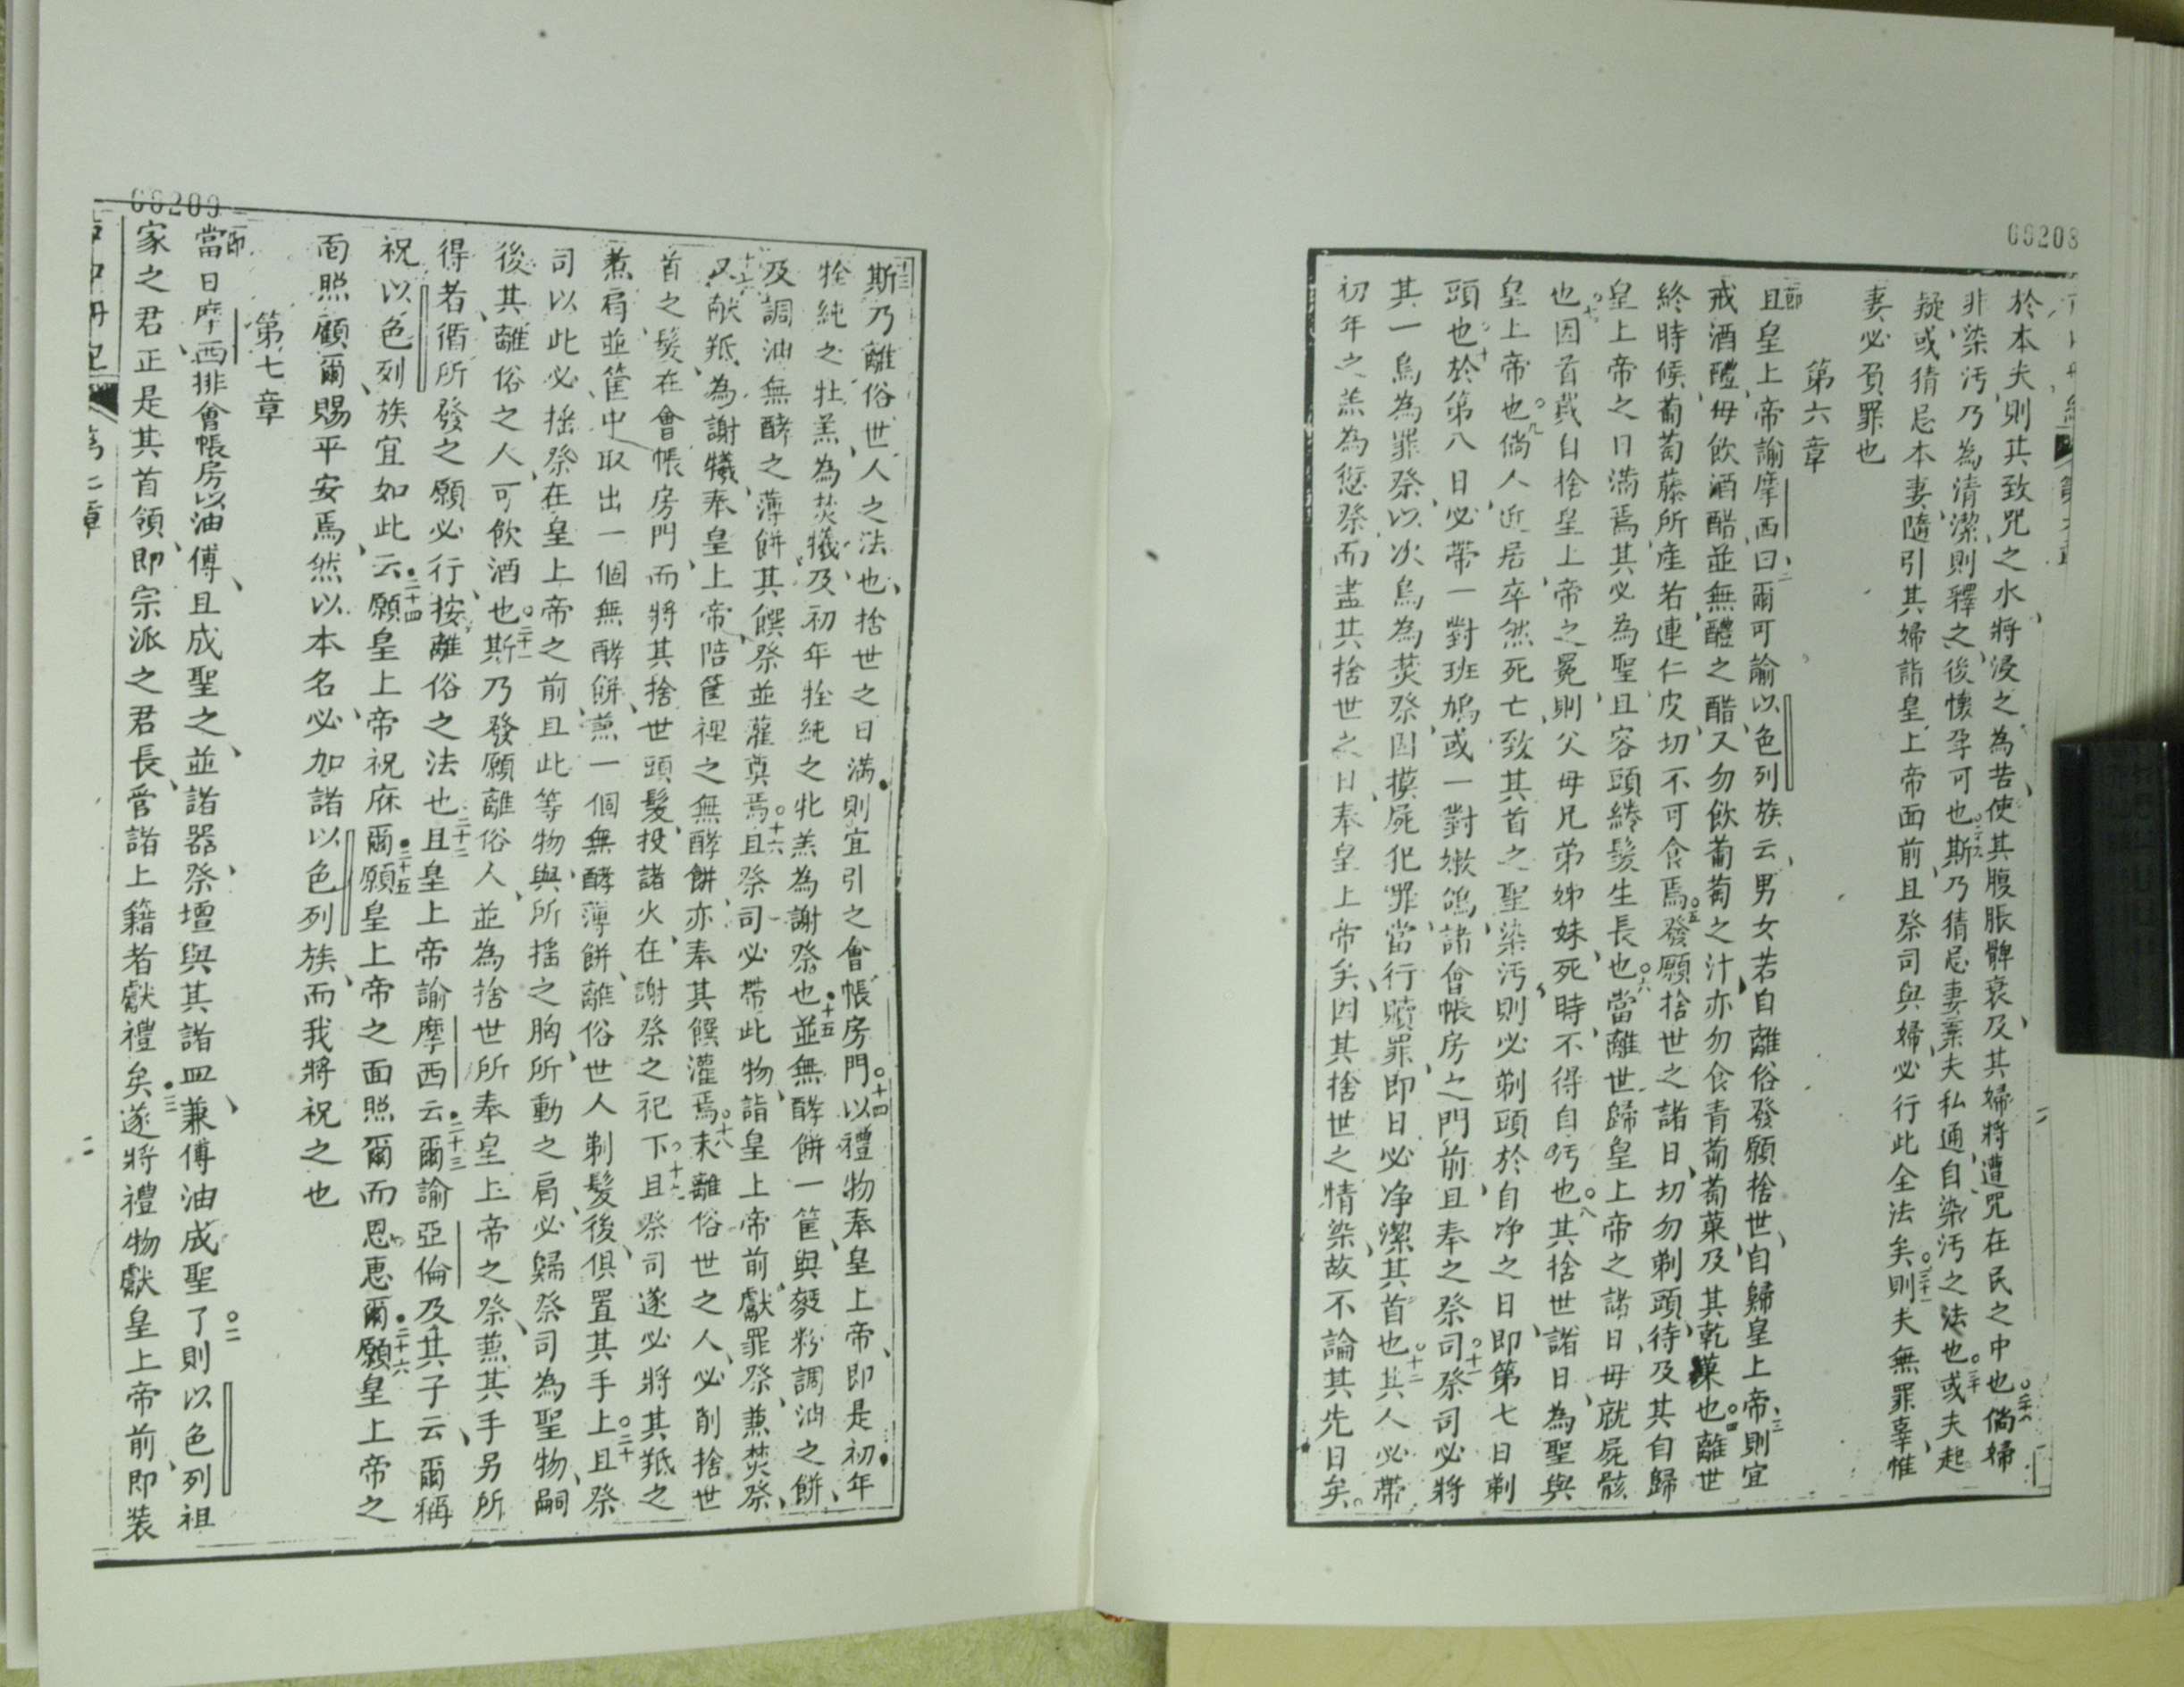 00208
於本夫則其致咒之水將浸之為苦使其腹脹髀衰及其婦將遭咒在民之中也倘婦
非染汚乃為清潔則釋之後懷孕可也斯乃猜忌妻棄夫私通自染汚之法也或夫起
疑或猜忌本妻隨引其婦詣皇上帝面前且祭司與婦必行此全法矣則夫無罪辜惟
妻必負罪也
第六章
節且皇上帝諭摩西曰爾可諭以色列族云男女若自離俗發願捨世自歸皇上帝則宜
戒酒醴毋飲酒醋並無醴之醋又勿飲葡萄之汁亦勿食青葡萄菓及其乾菓也離世
終時候葡萄藤所產若連仁皮切不可食焉發願捨世之諸日切勿剃頭待及其自歸
皇上帝之日滿焉其必為聖且容頭綣髮生長也當離世歸皇上帝之諸日毋就屍骸
也因首戴自捨皇上帝之冕則父母兄弟姊妹死時不得自汚也其捨世諸日為聖與
皇上帝也倘人近居卒然死亡致其首之聖染汚則必剃頭於自净之日即第七日剃
頭也於第八日必帶一對班鳩或一對嫩鴿諸會帳房之門前且奉之祭司祭司必將
其一鳥為罪祭以次鳥為焚祭因摸屍犯罪當行贖罪即日必净潔其首也其人必帶
初年之羔為愆祭而盡其捨世之日奉皇上帝矣因其捨世之情染故不論其先日矣
斯乃離俗世人之法也捨世之日滿則宜引之會帳房門以禮物奉皇上帝即是初年
牷純之牡羔為焚犧及初年牷純之牝羔為謝祭也並無酵餅一筐與麪粉調油之餅
及調油無酵之薄餅其饌祭並灌奠焉且祭司必帶此物詣皇上帝前獻罪祭兼焚祭
又献羝為謝犧奉皇上帝陪筐裡之無酵餅亦奉其饌灌焉未離俗世之人必削捨世
首之髮在會帳房門而將其捨世頭髮投諸火在謝祭之祀下且祭司遂必將其羝之
煮肩並筐中取出一個無酵餅兼一個無酵薄餅離俗世人剃髮後俱置其手上且祭
司以此必搖祭在皇上帝之前且此等物與所搖之胸所動之肩必歸祭司為聖物嗣
後其離俗之人可飲酒也斯乃發願離俗人並為捨世所奉皇上帝之祭兼其手另所
得者循所發之願必行按離俗之法也且皇上帝諭摩西云爾諭亞倫及其子云爾稱
祝以色列族宜如此云願皇上帝祝庥爾願皇上帝之面照爾而恩惠爾願皇上帝之
面照顧爾賜平安焉然以本名必加諸以色列族而我將祝之也
第七章
節當日摩西排會帳房以油傅且成聖之並諸器祭壇與其諸皿兼傅油成聖了則以色列祖
家之君正是其首領即宗派之君長管諸上籍者獻禮矣遂將禮物獻皇上帝前即裝
00209